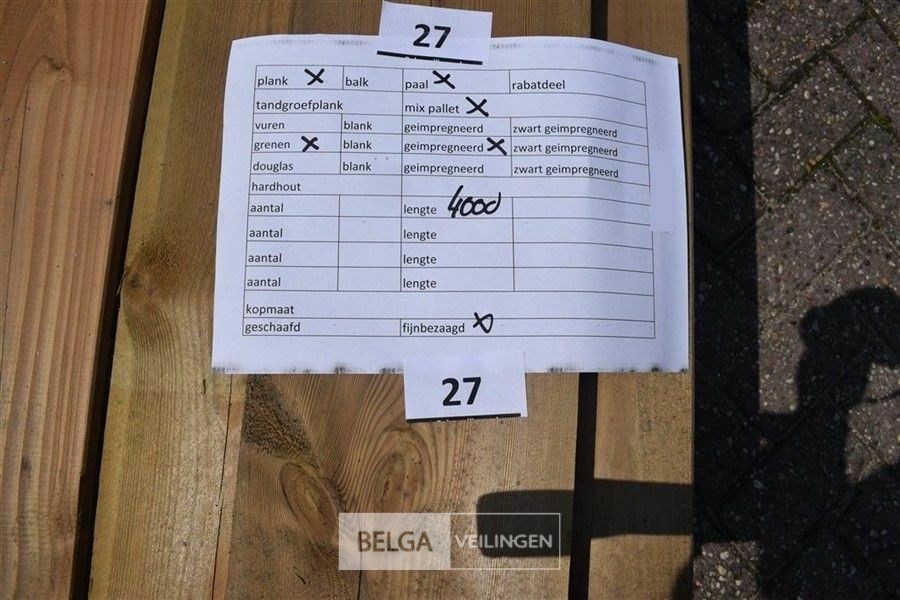 27
plank X balk paal X rabatdeel
tandgroefplank mix pallet X
vuren blank geimpregneerd zwart geimpregneerd
grenen X blank geimpregneerd X zwart geimpregneerd
douglas blank geimpregneerd zwart geimpregneerd
hardhout
aantal lengte 4000
aantal lengte
aantal lengte
aantal lengte
kopmaat
geschaafd fijnbezaagd X
27
BELGA VEILINGEN